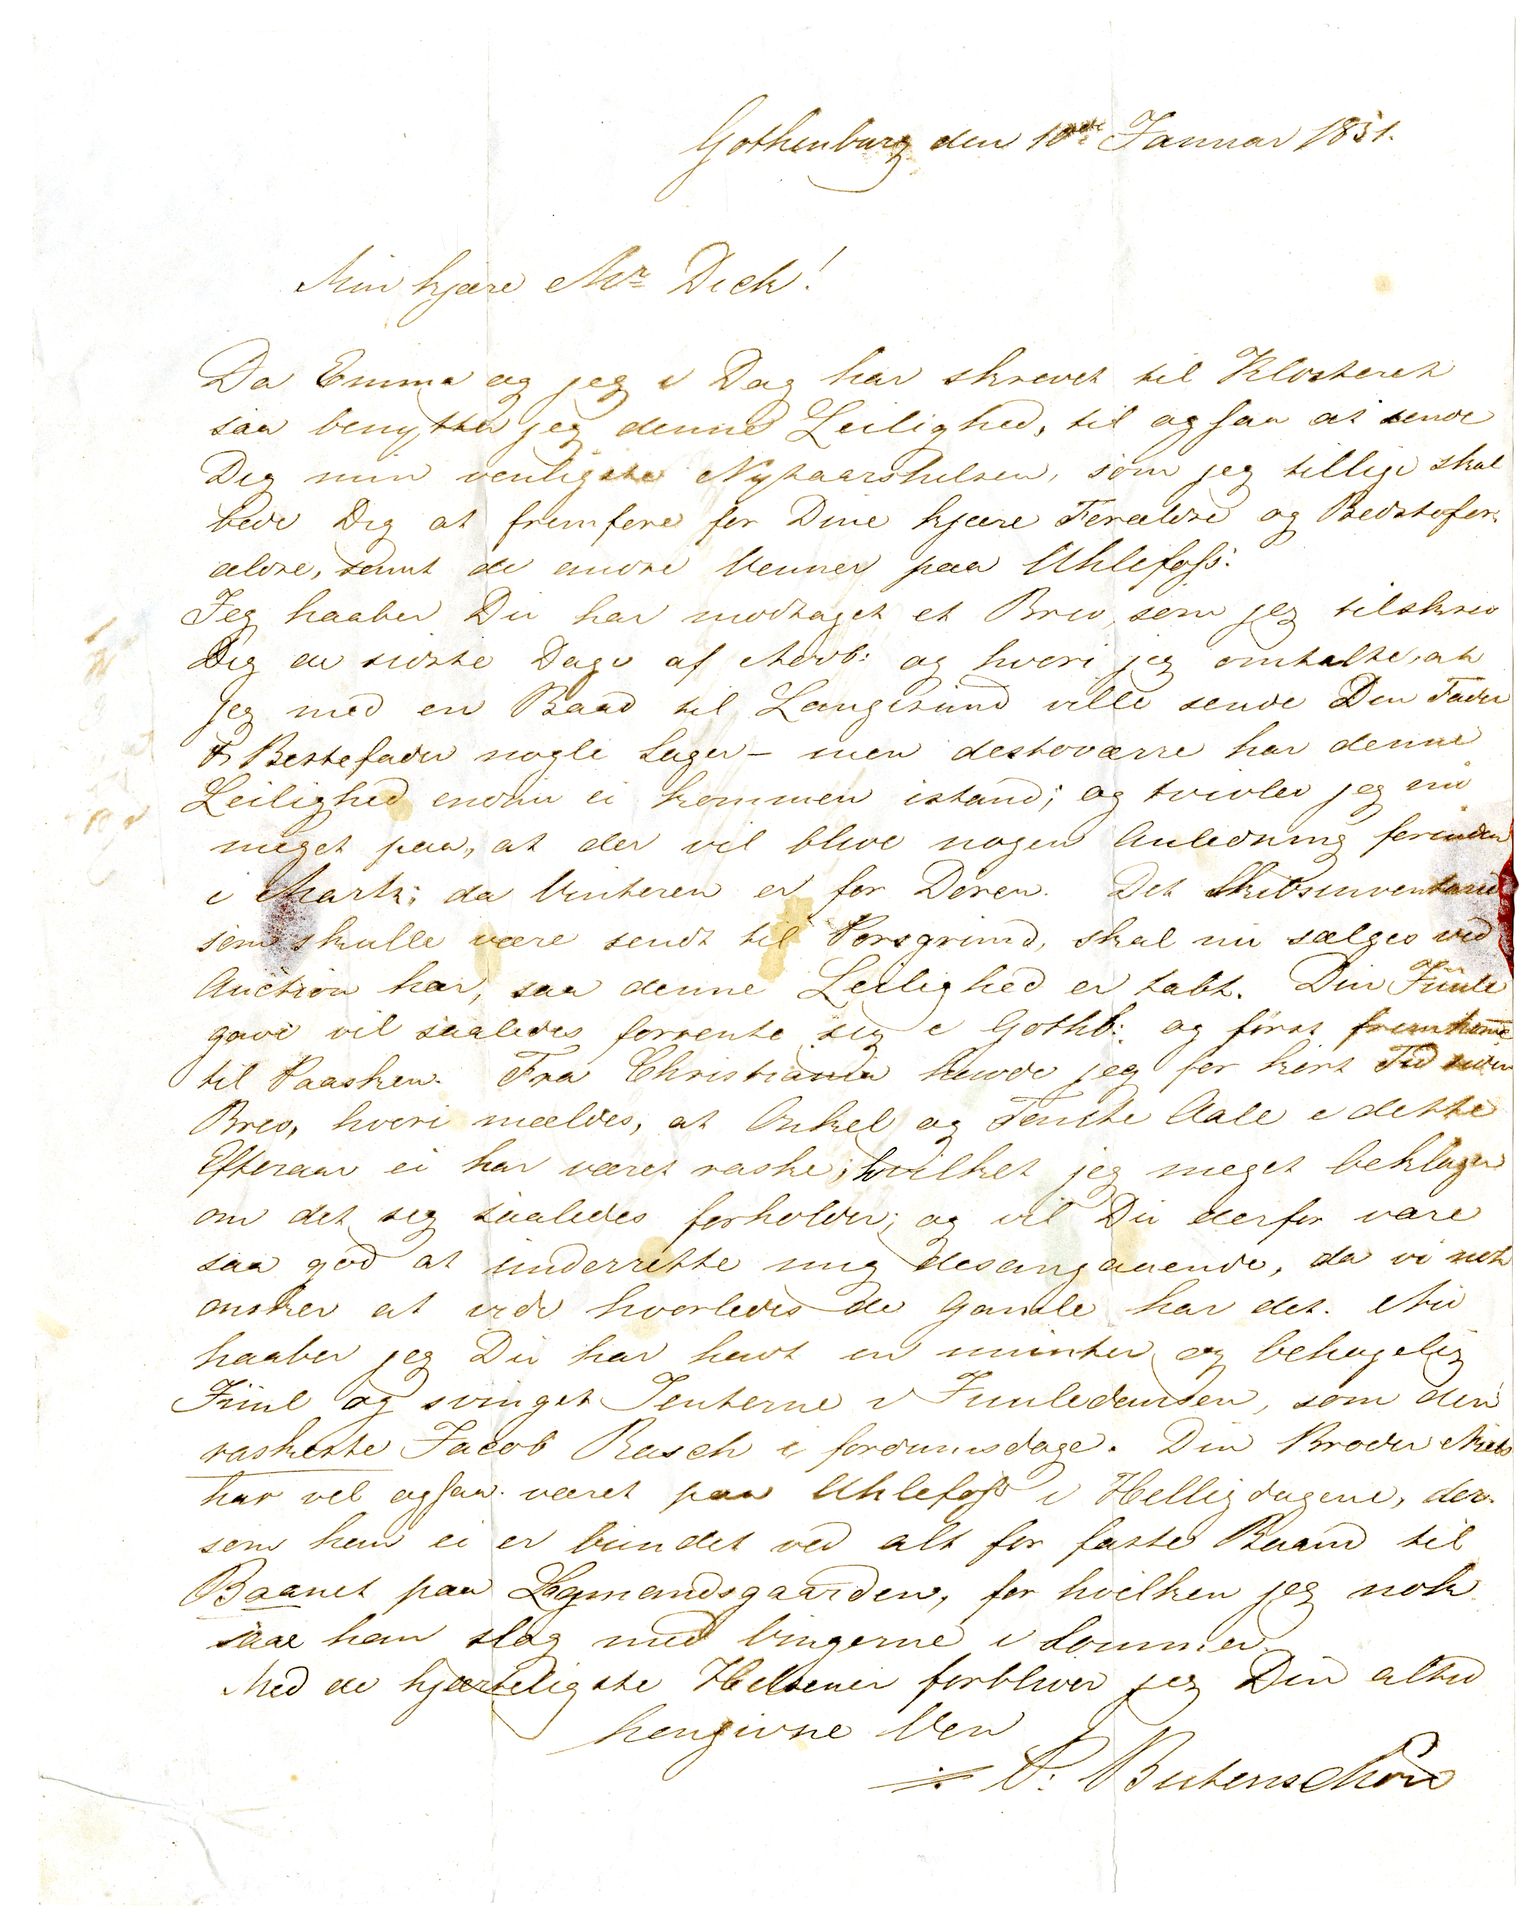 Gothenburg den 10de Januar 1851.
Min kjære Mr Dick!
Da Emma og jeg i Dag har skrevet til Klosteret
saa benytter jeg denne Leilighed, til ogsaa at sende
Dig min venligste Nytaarshilsen, som jeg tillige skal
bede Dig at fremføre for Dine kjære Forældre og Bedstefor-
ældre, samt de andre Venner paa Uhlefoss.
Jeg haaber Du har modtaget et Brev, som jeg tilskrev
Dig de sidste Dage af Novb: og hvori jeg omtalte, at
jeg med en Baad til Langesund ville sende Din Fader
& Bestefader nogle Sager – men desto værre har denne
Leilighed endnu ei kommen istand; og tvivler jeg nu
meget paa, at der vil blive nogen Anledning forinden
i Marts; da Vinteren er for Døren. Det Skibsinventarie
som skulle være sendt til Porsgrund, skal nu sælges ved
Auction her, saa denne Leilighed er tabt. Din Juule
gave vil saaledes forrente sig i Gothb: og først fremkomme
til Paasken. Fra Christiania havde jeg for kort Tid siden
Brev, hvori mældes, at Onkel og Tante Aale i dette
Efteraar ei har været raske; hvilket jeg meget beklager
om det sig saaledes forholder; og vil Du derfor være
saa god at underrette mig desangaaende, da vi nok
ønsker at vide hvorledes de Gamle har det. Nu
haaber jeg Du har havt en munter og behagelig
Juul og svinget Jenterne i Juuledandsen, som den
raskeste Jacob Rasch i fordumsdage. Din Broder Niels
har vel ogsaa været paa Uhlefoss i Helligdagene, der-
som han ei er bundet ved alt for faste Baand til
Baanet paa Lagmandsgaarden, for hvilken jeg nok
saae han slog med Vingerne i Sommer.
Med de hjærteligste Hilsener forbliver jeg Din altid
hengivne Ven
P: Butenschøn